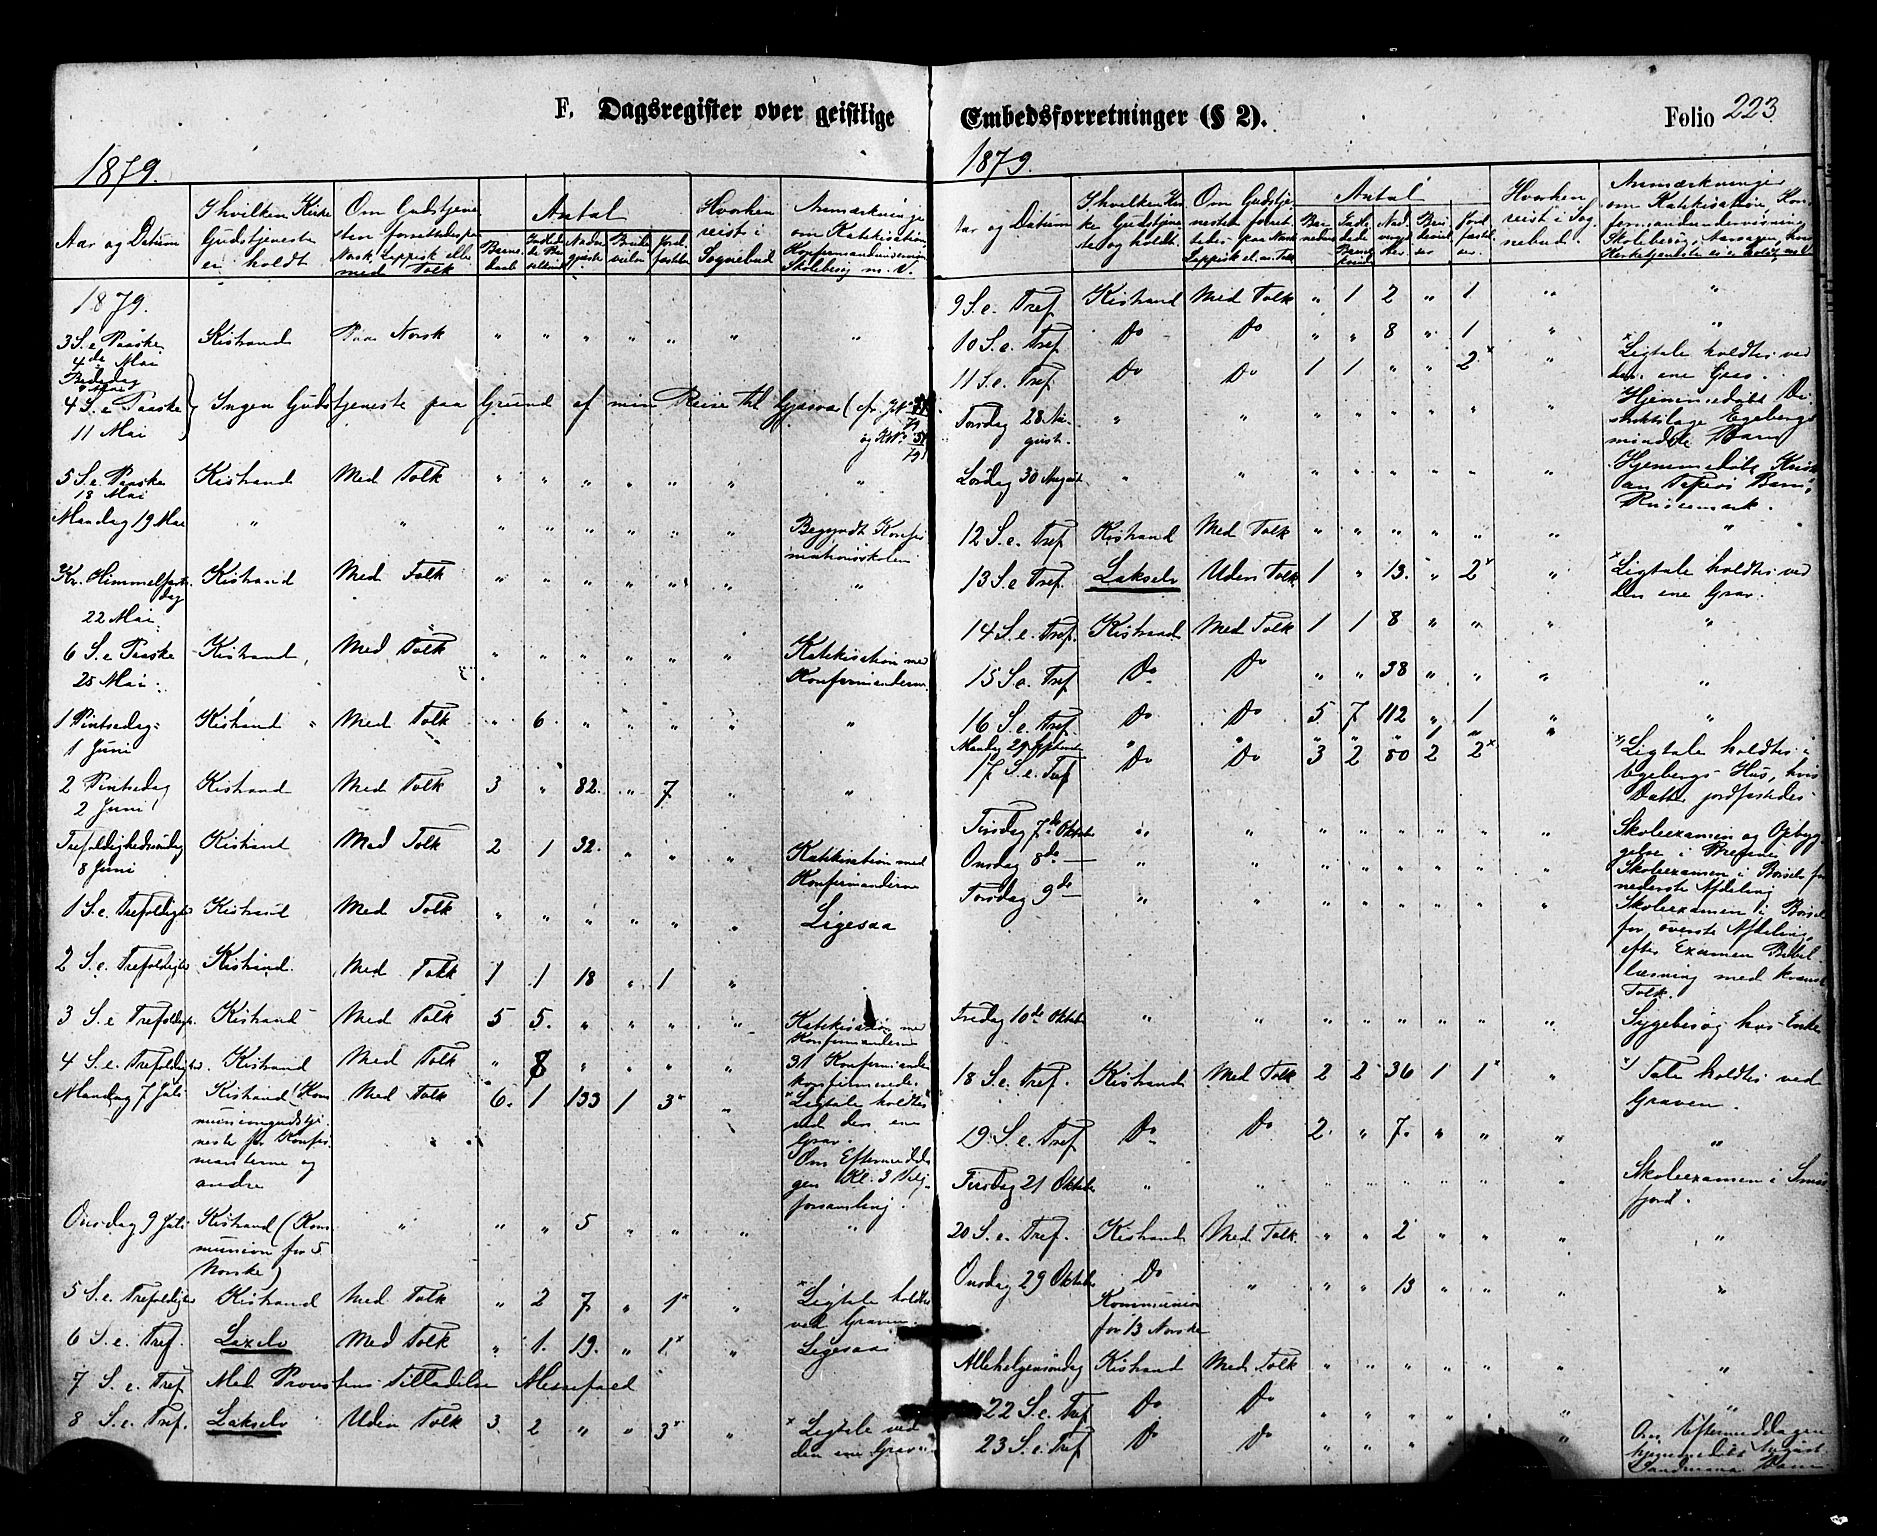 F. Dagsregister over geistlige
1879.
Aar og Datum | I hvilken Kirke Gudstjeneste er holdt | Om Gudstjenesten forrettedes paa Norsk, Lappisk eller med Tolk | Antal | Hvorhen reist i Sognebud | Anmærkninger om Katekisation, Konfirmandundervisning Skolebesøg m. V.
1879.
3 S. e. Paaske 4de Mai | Kistrand | Paa Norsk | " | " | " | " | " | " | "
Bededag
4 S. e. Paaske 11 Mai | Ingen Gudstjeneste paa Grund af min Reise til Gjesvær
5 S. e. Paaske 18 Mai | Kistrand | Med Tolk | " | " | " | " | " | " | "
Mandag 19 Mai | " | " | " | " | " | " | " | " | Begyndt Konfirmationsskolen
Kr. Himmelfartsdag 22 Mai | Kistrand | Med Tolk | " | " | " | " | " | " | "
6 S. e. Paaske 25 Mai | Kistrand | Med Tolk | " | " | " | " | " | " | Katekisation med Konfirmanderne
1 Pintsedag 1 Juni | Kistrand | Med Tolk | " | 6 | " | " | " | " | "
2 Pintsedag 2 Juni | Kistrand | Med Tolk | 3 | " | 82. | " | 7 | " | "
Trefoldighedssøndag 8 Juni | Kistrand | Med Tolk | 2 | 1 | 32. | " | " | " | Katekisation med Konfirmanderne
1 S. e. Trefoldighed | Kistrand | Med Tolk | " | " | " | " | " | " | Ligesaa
2 S. e. Trefoldighed | Kistrand | Med Tolk | 1 | 1 | 18 | " | 1 | "
3 S. e. Trefoldigh. | Kistrand | Med Tolk | 5 | 5. | " | " | " | " | Katekisation med Konfirmanderne
4 S. e. Trefoldighed | Kistrand | Med Tolk | " | 8 | " | " | " | " | 31 Konfirmander konfirmerede.
Mandag 7 Juli | Kistrand (Kommuniongudstjeneste for Konfirmanterne og andre | Med Tolk | 6. | 1 | 133 | 1 | 3x | " | x Ligtale holdtes ved den ene Grav. Om Eftermiddagen Kl. 3 forsamling.
Onsdag 9 Juli | Kistrand (Kommunion for 5 Norske) | " | " | " | 5 | " | " | " | "
5 S. e. Trefoldighed | Kistrand | Med Tolk | " | 2 | 7 | " | 1x | " | x Ligtale holdtes ved Graven.
6 S. e. Tref. | Laxelv | Med Tolk | " | 1. | 19. | " | 1x | " | Ligesaa
7 S. e. Tref | Med Provstens Tilladelse Messefald
8 S. e. Tref. | Lakselv | Uden Tolk | 3. | 2 | " | " | 3x | " | x Ligtale ved den ene Grav
Embedsforretninger (§ 2).
Folio 223
1879.
Aar og Datum | I hvilken Kirke Gudstjeneste og holdt. | Om Gudstjenesten forrettedes paa Norsk Lappisk el. m. Tolk | Antal | Hvorhen reist i Sognebud. | Anmærkninger om Katekisation Konfirmandundervisning Skolebesøg
9 S. e. Tref | Kistrand | Med Tolk | " | 1 | 2 | " | 1 | " | "
10 S. e. Tref | Do | Do | " | " | 8 | " | 1 | " | "
11 S. e. Tref | Do | Do | 1 | 1 | " | " | 2x | " | x Ligtale holdtes ved den ene Grav.
Torsdag 28 August. | " | " | " | " | " | " | " | " | Hjemmedøbt Distriktslæge Egebergs Barn
Lørdag 30 August | " | " | " | " | " | " | " | " | Hjemmedøbt Barn
12 S. e. Tref | Kistrand | Med Tolk | " | " | " | " | " | " | "
13 S. e. Tref. | Lakselv | Uden Tolk | 1 | " | 13. | " | 2x | " | x Ligtale holdtes ved den ene Grav.
14 S. e. Tref. | Kistrand | Med Tolk | 1 | 1 | 8 | " | " | " | "
15 S. e. Tref | Do | Do | " | " | 38 | " | " | " | "
16 S. e. Tref. | Do | Do | 5 | 7 | 112 | " | 1 | " | "
Mandag 29 September | " | " | " | " | " | 1 | " | "
17 S. e. Tref | Do | Do | 3 | 2 | 50 | 2 | 2x | x Ligtale holdtes i Egebergs Hus, hvis Datter jordfæstedes
Tirsdag 7de Oktober | " | " | " | " | " | " | " | " | Skoleexamen og Opbyggelse i
Onsdag 8de — | " | " | " | " | " | " | " | " | Skoleexamen i Børselv for nederste Afdeling
Torsdag 9de — | " | " | " | " | " | " | " | " | Skoleexamen i Børselv for øverste Afdeling, efter Examen Bibellæsning med kvænsk Tolk.
Fredag 10de Oktober | " | " | " | " | " | " | " | " | Sygebesøg hos Enke
18 S. e. Tref. | Kistrand | Med Tolk | 2 | 2 | 36 | 1 | 1x | " | x Tale holdtes ved Graven.
19 S. e. Tref | Do | Do | 2. | " | 7. | " | " | " | "
Tirsdag 21 Oktober | " | " | " | " | " | " | " | " | Skoleexamen i Smørfjord.
20 S. e. Tref. | Kistrand | Med Tolk | " | " | 2 | " | " | " | "
Onsdag 29 Oktober | Do Kommunion for 13 Norske | " | " | " | 13 | " | " | " | "
Allehelgensøndag | Kistrand | Med Tolk | " | " | " | " | " | " | "
22 S. e. Tref | Do | Do | " | " | " | " | " | " | "
23 S. e. Tref | Do | Do | " | " | " | " | " | " | Om Eftermiddagen hjemmedøbt August Barn